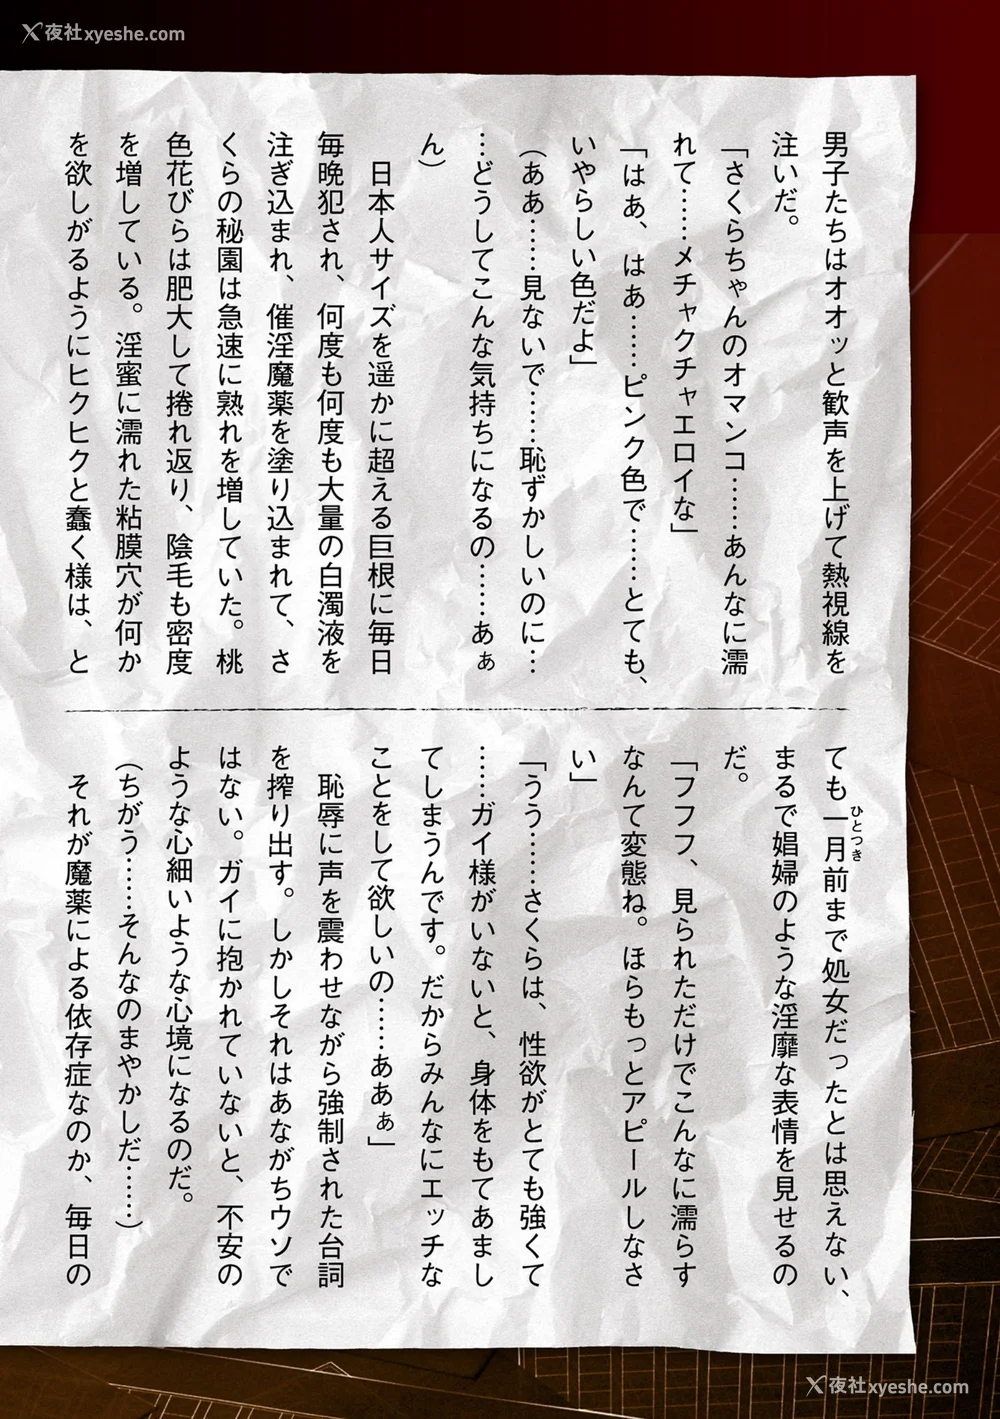 夜社xyeshe.com
男子たちはオオッと歓声を上げて熱視線を
注いだ。
「さくらちゃんのオマンコ……あんなに濡
れて……メチャクチャエロイな」
「はあ、はあ……ピンク色で……とても、
いやらしい色だよ」
(ああ……見ないで……恥ずかしいのに…
…どうしてこんな気持ちになるの……あぁ
ん)
日本人サイズを遥かに超える巨根に毎日
毎晩犯され、何度も何度も大量の白濁液を
注ぎ込まれ、催淫魔薬を塗り込まれて、さ
くらの秘園は急速に熟れを増していた。桃
色花びらは肥大して捲れ返り、陰毛も密度
を増している。淫蜜に濡れた粘膜穴が何か
を欲しがるようにヒクヒクと蠢く様は、と
ても一月前まで処女だったとは思えない、
ひとつき
まるで娼婦のような淫靡な表情を見せるの
だ。
「フフフ、見られただけでこんなに濡らす
なんて変態ね。ほらもっとアピールしなさ
い」
「うう……さくらは、性欲がとても強くて
……ガイ様がいないと、身体をもてあまし
てしまうんです。だからみんなにエッチな
ことをして欲しいの……ああぁ」
恥辱に声を震わせながら強制された台詞
を搾り出す。しかしそれはあながちウソで
はない。ガイに抱かれていないと、不安の
ような心細いような心境になるのだ。
(ちがう……そんなのまやかしだ……)
それが魔薬による依存症なのか、毎日の
夜社xyeshe.com